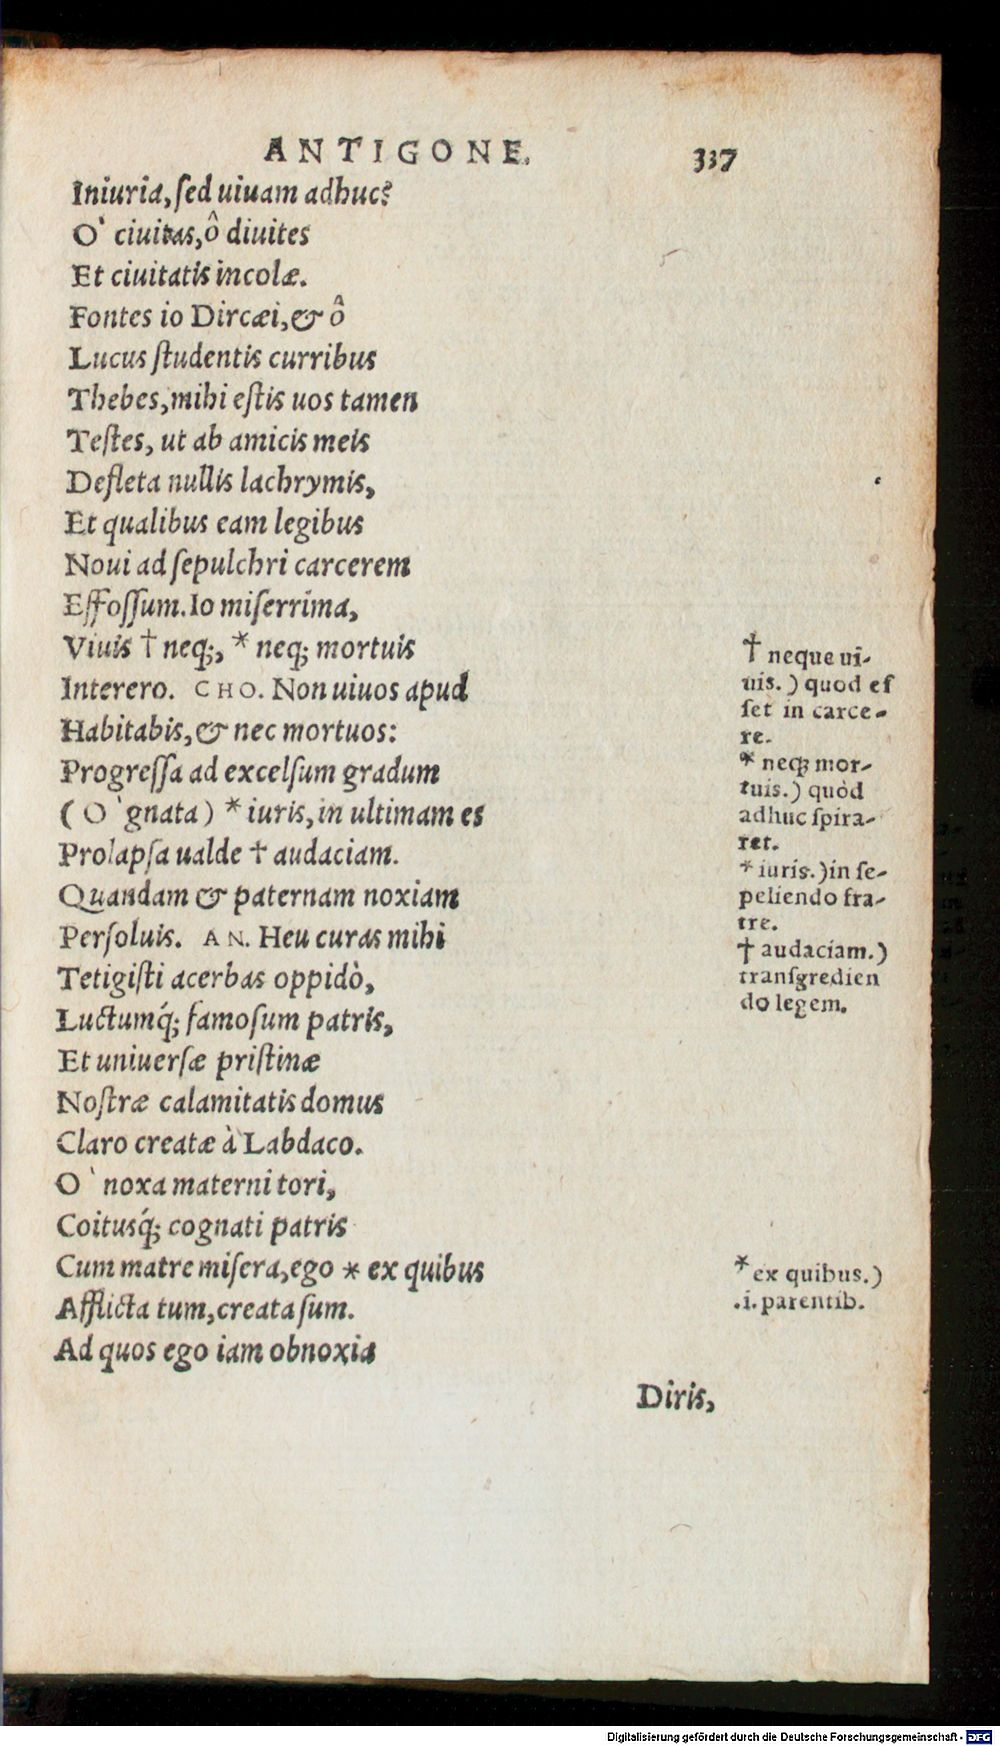 ANTIGONE. 337
Iniuria, ſed uiuam adhuc?
O` ciuitas, ô diuites
Et ciuitatis incolæ.
Fontes io Dircæi, & ô
Lucus ſtudentis curribus
Thebes, mihi eſtis uos tamen
Teſtes, ut ab amicis meis
Defleta nullis lachrymis,
Et qualibus eam legibus
Noui ad ſepulchri carcerem
Effoſſum. Io miſerrima,
Viuis † neq;, * neq; mortuis
Interero. CHO. Non uiuos apud
Habitabis, & nec mortuos:
Progreſſa ad excelſum gradum
( O` gnata ) * iuris, in ultimam es
Prolapſa ualde † audaciam.
Quandam & paternam noxiam
Perſoluis. AN. Heu curas mihi
Tetigiſti acerbas oppidò,
Luctumq́; famoſum patris,
Et uniuerſæ priſtinæ
Noſtræ calamitatis domus
Claro creatæ à Labdaco.
O` noxa materni tori,
Coitusq́; cognati patris
Cum matre miſera, ego * ex quibus
Afflicta tum, creata ſum.
Ad quos ego iam obnoxia
Diris,
† neque ui-
uis. ) quod eſ
ſet in carce-
re.
* neq; mor-
tuis. ) quòd
adhuc ſpira-
ret.
* iuris. ) in ſe-
peliendo fra-
tre.
† audaciam. )
tranſgredien
do legem.
* ex quibus. )
.i. parentib.
Digitalisierung gefördert durch die Deutsche Forschungsgemeinschaft - DFG